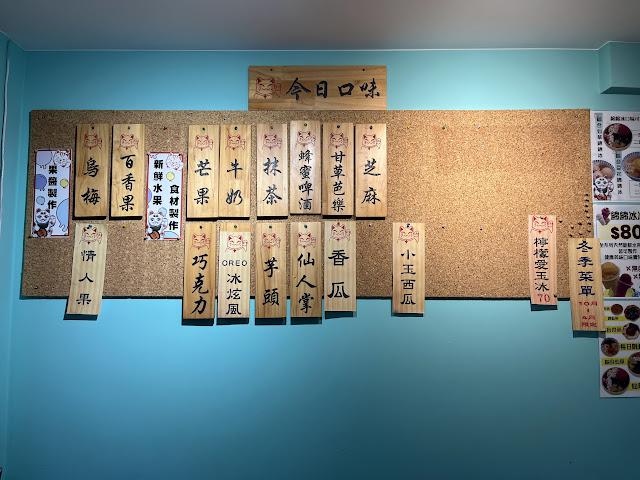 今日口味
果醬製作
烏梅
百香果
新鮮水果
食材製作
芒果
牛奶
抹茶
蜂蜜啤酒
甘草芭樂
芝麻
情人果
巧克力
OREO
冰炫風
芋頭
仙人掌
香瓜
小玉西瓜
檸檬愛玉冰
70
冬季菜單
10月
4月
限定
綿綿冰
$80